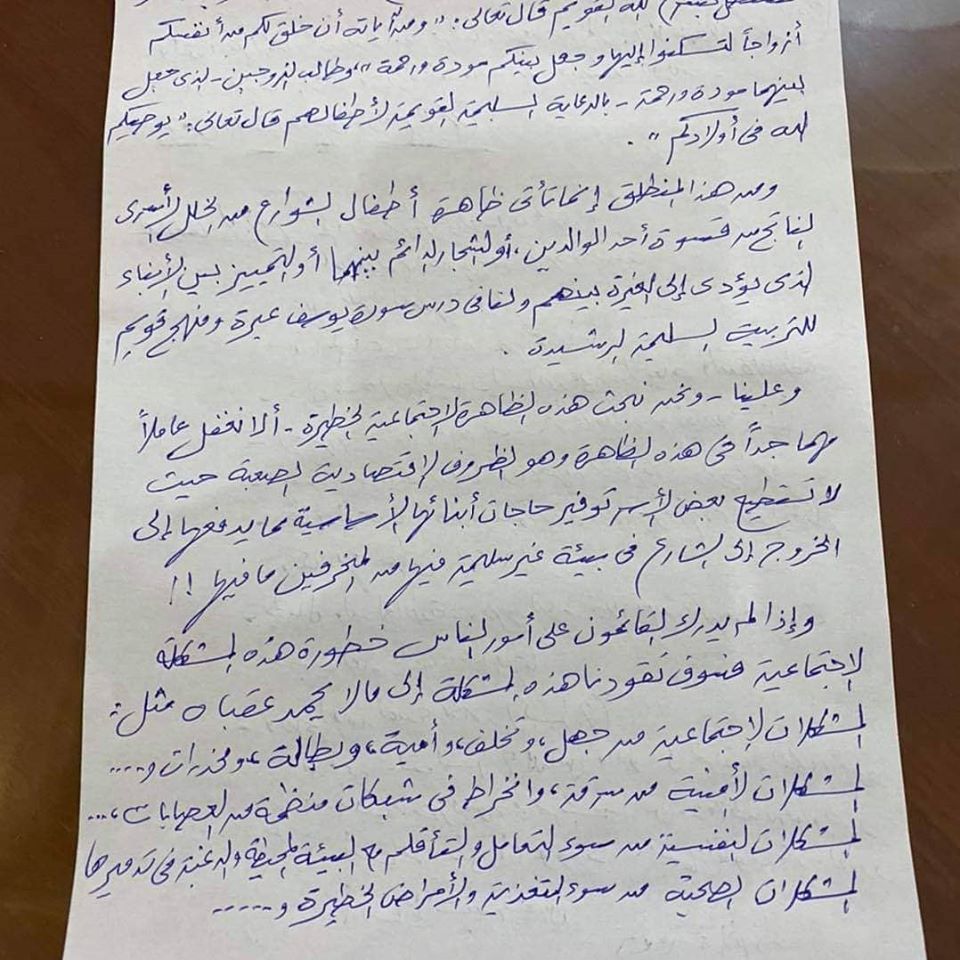 الله القويم قال تعالى: "ومن آياته أن خلق لكم من أنفسكم
أزواجاً لتسكنوا إليها وجعل بينكم مودة ورحمة"، وطالب الزوجين - الذى جعل
بينهما مودة ورحمة - بالرعاية السليمة القويمة لأطفالهم قال تعالى: "يوصيكم
الله فى أولادكم".
ومن هذا المنطلق إنما تأتى ظاهرة أطفال الشوارع من الخلل الأسرى
الناتج من قسوة أحد الوالدين، أو الشجار الدائم بينهما أو التمييز بين الأبناء
الذى يؤدى إلى الغيرة بينهم ولنا فى درس سورة يوسف عبرة ومنهج قويم
للتربية السليمة الرشيدة.
وعلينا - ونحن نبحث هذه الظاهرة الاجتماعية الخطيرة - ألا نغفل عاملاً
مهما جداً فى هذه الظاهرة وهو الظروف الاقتصادية الصعبة حيث
لا تستطيع بعض الأسر توفير حاجات أبنائها الأساسية مما يدفعها إلى
الخروج إلى الشارع فى بيئة غير سليمة فيها من المنحرفين ما فيها !!
وإذا لم يدرك القائمون على أمور الناس خطورة هذه المشكلة
الاجتماعية فسوف تقودنا هذه المشكلة إلى ما لا يحمد عقباه مثل:
المشكلات الاجتماعية من جهل، وتخلف، وأمية، وبطالة، ومخدرات و....
المشكلات الأمنية من سرقة، وانخراط فى شبكات منظمة من العصابات،...
المشكلات النفسية من سوء التعامل والتأقلم مع البيئة المحيطة والرغبة فى تدميرها
المشكلات الصحية من سوء التغذية والأمراض الخطيرة و......